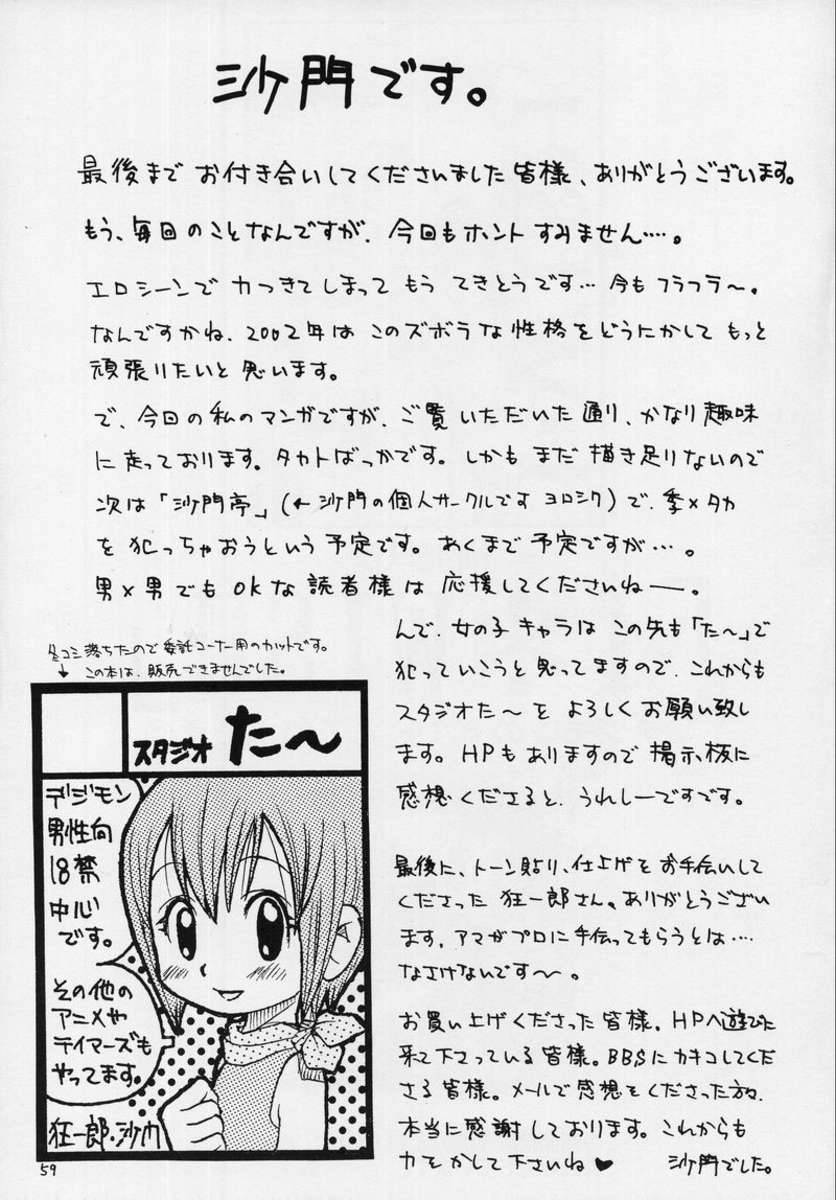 沙門です。
最後まで お付き合いしてくださいました皆様、ありがとうございます。
もう、毎回のことなんですが、今回もホントすみません‥‥。
エロシーンで 力つきてしまって もう てきとうです… 今もフラフラ〜。
なんですかね、2002年は このズボラな性格をどうにかして もっと
頑張りたいと思います。
で、今回の私のマンガですが、ご覧 いただいた通り、かなり趣味
に走っております。タカトばっかです。しかも まだ 描き足りないので
次は「沙門亭」(←沙門の個人サークルです ヨロシク)で、季×タカ
を 犯っちゃおうという 予定です。あくまで 予定ですが…。
男×男でも OKな読者様は 応援してくださいねー。
冬コミ落ちたので委託コーナー用のカットです。
↓ この本は、販売できませんでした。
んで、女の子キャラは この先も「た〜」で
犯っていこうと思ってますので、これからも
スタジオた〜を よろしくお願い致し
ます。HPもありますので 掲示板に
感想くださると、うれしーですです。
スタジオ た〜
デジモン
男性向
18禁
中心
です。
その他の
アニメや
テイマーズも
やってます。
狂一郎・沙門
最後に、トーン貼り、仕上げを お手伝いして
くださった 狂一郎さん。ありがとうござい
ます。アマがプロに手伝ってもらうとは…
なさけないです〜。
お買い上げくださった皆様。HPへ遊びに
来て下さっている皆様。BBSにカキコしてくだ
さる皆様。メールで感想をくださった方々、
本当に感謝しております。これからも
力をかして下さいね♥ 沙門でした。
59